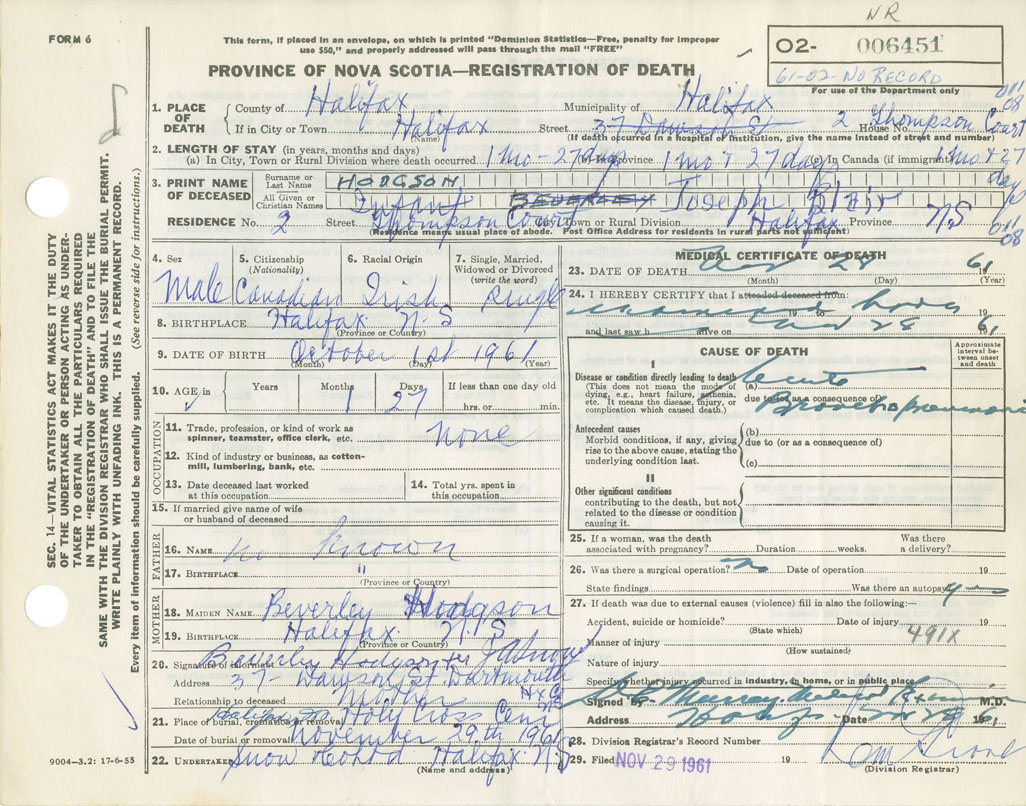 NR
FORM 6
This form, if placed in an envelope, on which is printed "Dominion Statistics—Free, penalty for improper
use $50," and properly addressed will pass through the mail "FREE"
O2- 006451
61-02-NO RECORD
For use of the Department only
PROVINCE OF NOVA SCOTIA—REGISTRATION OF DEATH
011
08
1. PLACE OF DEATH County of Halifax Municipality of Halifax
If in City or Town Halifax Street 37 Dawson St House No. 2 Thompson Court
(Name) (If death occurred in a hospital or institution, give the name instead of street and number)
2. LENGTH OF STAY (in years, months and days)
(a) In City, Town or Rural Division where death occurred 1 mo - 27 days (b) In province 1 mo + 27 days (c) In Canada (if immigrant) 1 mo + 27 days
3. PRINT NAME OF DECEASED Surname or Last Name HODGSON
All Given or Christian Names Infant BEVERLEY Joseph Blair
RESIDENCE No. 2 Street Thompson Court City, Town or Rural Division Halifax Province N.S
011
08
Residence means usual place of abode. Post Office Address for residents in rural parts not sufficient)
4. Sex 5. Citizenship (Nationality) 6. Racial Origin 7. Single, Married, Widowed or Divorced (write the word)
Male Canadian Irish single
8. BIRTHPLACE Halifax N.S
(Province or Country)
9. DATE OF BIRTH October 1st 1961
(Month) (Day) (Year)
10. AGE in Years Months Days If less than one day old
1 27 hrs. or min.
OCCUPATION
11. Trade, profession, or kind of work as spinner, teamster, office clerk, etc. none
12. Kind of industry or business, as cotton-mill, lumbering, bank, etc.
13. Date deceased last worked at this occupation
14. Total yrs. spent in this occupation
15. If married give name of wife or husband of deceased
FATHER
16. NAME no known
17. BIRTHPLACE "
(Province or Country)
MOTHER
18. MAIDEN NAME Beverley Hodgson
19. BIRTHPLACE Halifax N.S
(Province or Country)
20. Signature of informant Beverley Hodgson per
Address 37 - Dawson St Dartmouth
Relationship to deceased Mother
21. Place of burial, cremation or removal Holy Cross Cem
Date of burial or removal November 29th 1961
22. UNDERTAKER Snow Co Ltd Halifax N.S
(Name and address)
MEDICAL CERTIFICATE OF DEATH
23. DATE OF DEATH Nov 28 61
(Month) (Day) (Year)
24. I HEREBY CERTIFY that I attended deceased from:
examined body
19 to 19
and last saw h alive on Nov 28 61
CAUSE OF DEATH
Approximate interval between onset and death
I
Disease or condition directly leading to death (a) Acute
(This does not mean the mode of dying, e.g., heart failure, asthenia, etc. It means the disease, injury, or complication which caused death.)
due to (or as a consequence of) Bronchopneumonia
Antecedent causes
Morbid conditions, if any, giving rise to the above cause, stating the underlying condition last.
(b)
due to (or as a consequence of)
(c)
II
Other significant conditions
contributing to the death, but not related to the disease or condition causing it.
25. If a woman, was the death associated with pregnancy? Duration weeks. Was there a delivery?
26. Was there a surgical operation? no Date of operation 19
State findings Was there an autopsy yes
27. If death was due to external causes (violence) fill in also the following:—
Accident, suicide or homicide? Date of injury 19
(State which)
491X
Manner of injury
(How sustained)
Nature of injury
Specify whether injury occurred in industry, in home, or in public place
Signed By Murray Medical Examiner M.D.
Address Date Nov 28 1961
28. Division Registrar's Record Number
29. Filed NOV 29 1961 19
(Division Registrar)
SEC. 14—VITAL STATISTICS ACT MAKES IT THE DUTY
OF THE UNDERTAKER OR PERSON ACTING AS UNDER-
TAKER TO OBTAIN ALL THE PARTICULARS REQUIRED
IN THE "REGISTRATION OF DEATH" AND TO FILE THE
SAME WITH THE DIVISION REGISTRAR WHO SHALL ISSUE THE BURIAL PERMIT.
WRITE PLAINLY WITH UNFADING INK. THIS IS A PERMANENT RECORD.
Every item of information should be carefully supplied. (See reverse side for instructions.)
9004—3.2: 17-6-55